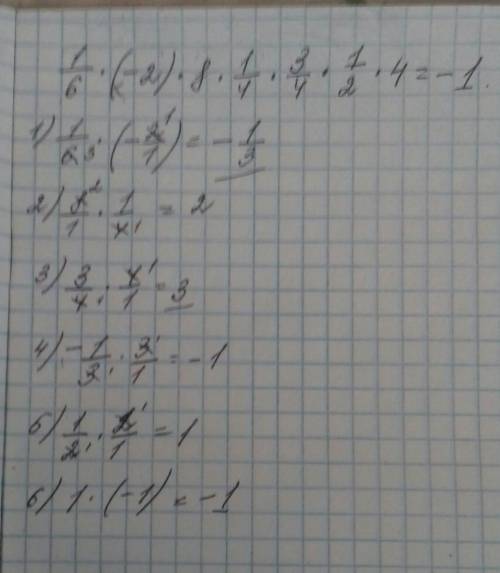 1/6 · (-2) · 8 · 1/4 · 3/4 · 1/2 · 4 = -1.
1) 1/6 3 · (-2 1/1) = -1/3
2) 8 2/1 · 1/4 1 = 2
3) 3/4 1 · 4 1/1 = 3
4) -1/3 1 · 3 1/1 = -1
5) 1/2 1 · 2 1/1 = 1
6) 1 · (-1) = -1